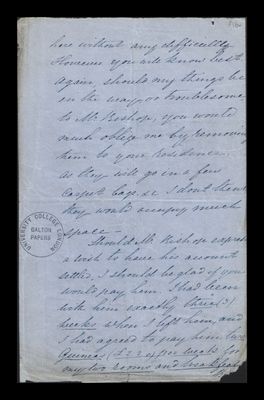 here without any difficulty.
However you will know best.
Again, should my things be
in the way, or troublesome
to Mr Bishop, you would
much oblige me by removing
them to your residence,
as they will go in a few
carpet bags, &c I don't think
they would occupy much
space —
Should Mr Bishop express
a wish to have his account
settled, I should be glad if you
would pay him. I had been
with him exactly three (3)
weeks when I left him, and
I had agreed to pay him two
Guineas (£2.2 per week) for
my two rooms and
UNIVERSITY COLLEGE LONDON
GALTON
PAPERS